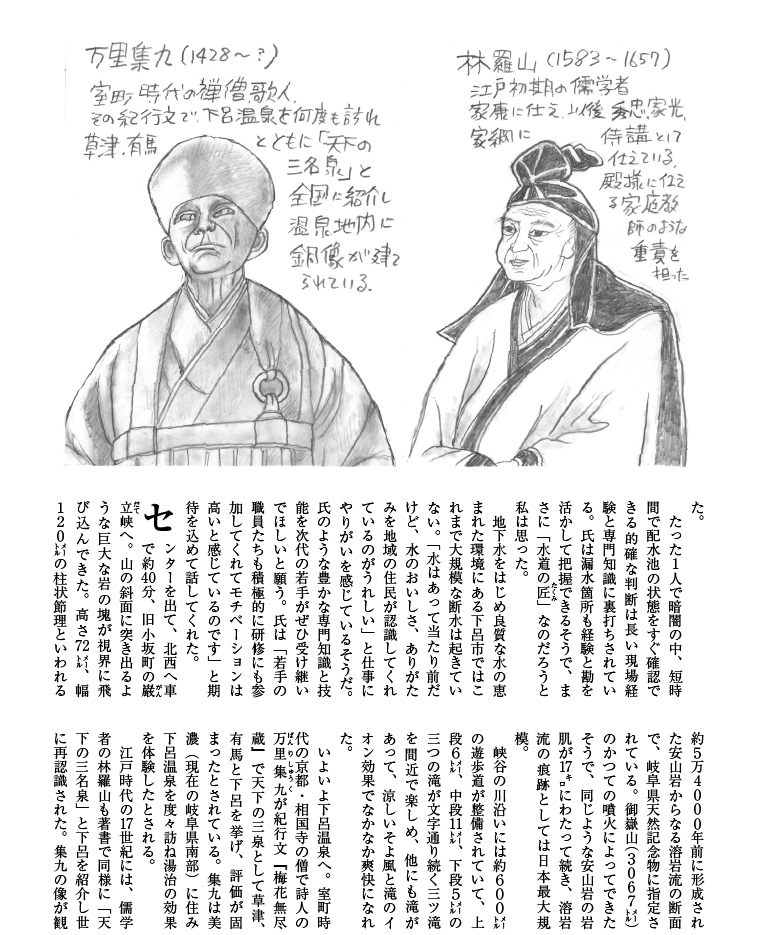 万里集九（1428～？）
室町時代の禅僧、歌人、
その紀行文で、下呂温泉を何度も訪れ
草津、有馬とともに「天下の
三名泉」と
全国に紹介し
温泉地内に
銅像が建て
られている。
林羅山（1583～1657）
江戸初期の儒学者
家康に仕え、以後秀忠、家光、
家綱に侍講として
仕えている。
殿様に仕え
る家庭教
師のような
重責を
担った
た。
　たった１人で暗闇の中、短時
間で配水池の状態をすぐ確認で
きる的確な判断は長い現場経
験と専門知識に裏打ちされてい
る。氏は漏水箇所も経験と勘を
活かして把握できるそうで、ま
さに「水道の匠（たくみ）」なのだろうと
私は思った。
　地下水をはじめ良質な水の恵
まれた環境にある下呂市ではこ
れまで大規模な断水は起きてい
ない。「水はあって当たり前だ
けど、水のおいしさ、ありがた
みを地域の住民が認識してくれ
ているのがうれしい」と仕事に
やりがいを感じているそうだ。
氏のような豊かな専門知識と技
能を次代の若手がぜひ受け継い
でほしいと願う。氏は「若手の
職員たちも積極的に研修にも参
加してくれてモチベーションは
高いと感じているのです」と期
待を込めて話してくれた。
センターを出て、北西へ車
で約40分、旧小坂町の巌（がん）
立（だて）峡へ。山の斜面に突き出るよ
うな巨大な岩の塊が視界に飛
び込んできた。高さ72㍍、幅
１２０㍍の柱状節理といわれる
約５万４０００年前に形成され
た安山岩からなる溶岩流の断面
で、岐阜県天然記念物に指定さ
れている。御嶽山（３０６７㍍）
のかつての噴火によってできた
そうで、同じような安山岩の岩
肌が17㌔にわたって続き、溶岩
流の痕跡としては日本最大規
模。
　峡谷の川沿いには約６００㍍
の遊歩道が整備されていて、上
段６㍍、中段11㍍、下段５㍍の
三つの滝が文字通り続く三ツ滝
を間近で楽しめ、他にも滝が
あって、涼しいそよ風と滝のイ
オン効果でなかなか爽快になれ
た。
　いよいよ下呂温泉へ。室町時
代の京都・相国寺の僧で詩人の
万里集九（ばんりしゅうく）が紀行文『梅花無尽
蔵』で天下の三泉として草津、
有馬と下呂を挙げ、評価が固
まったとされている。集九は美
濃（現在の岐阜県南部）に住み
下呂温泉を度々訪ね湯治の効果
を体験したとされる。
　江戸時代の17世紀には、儒学
者の林羅山も著書で同様に「天
下の三名泉」と下呂を紹介し世
に再認識された。集九の像が観